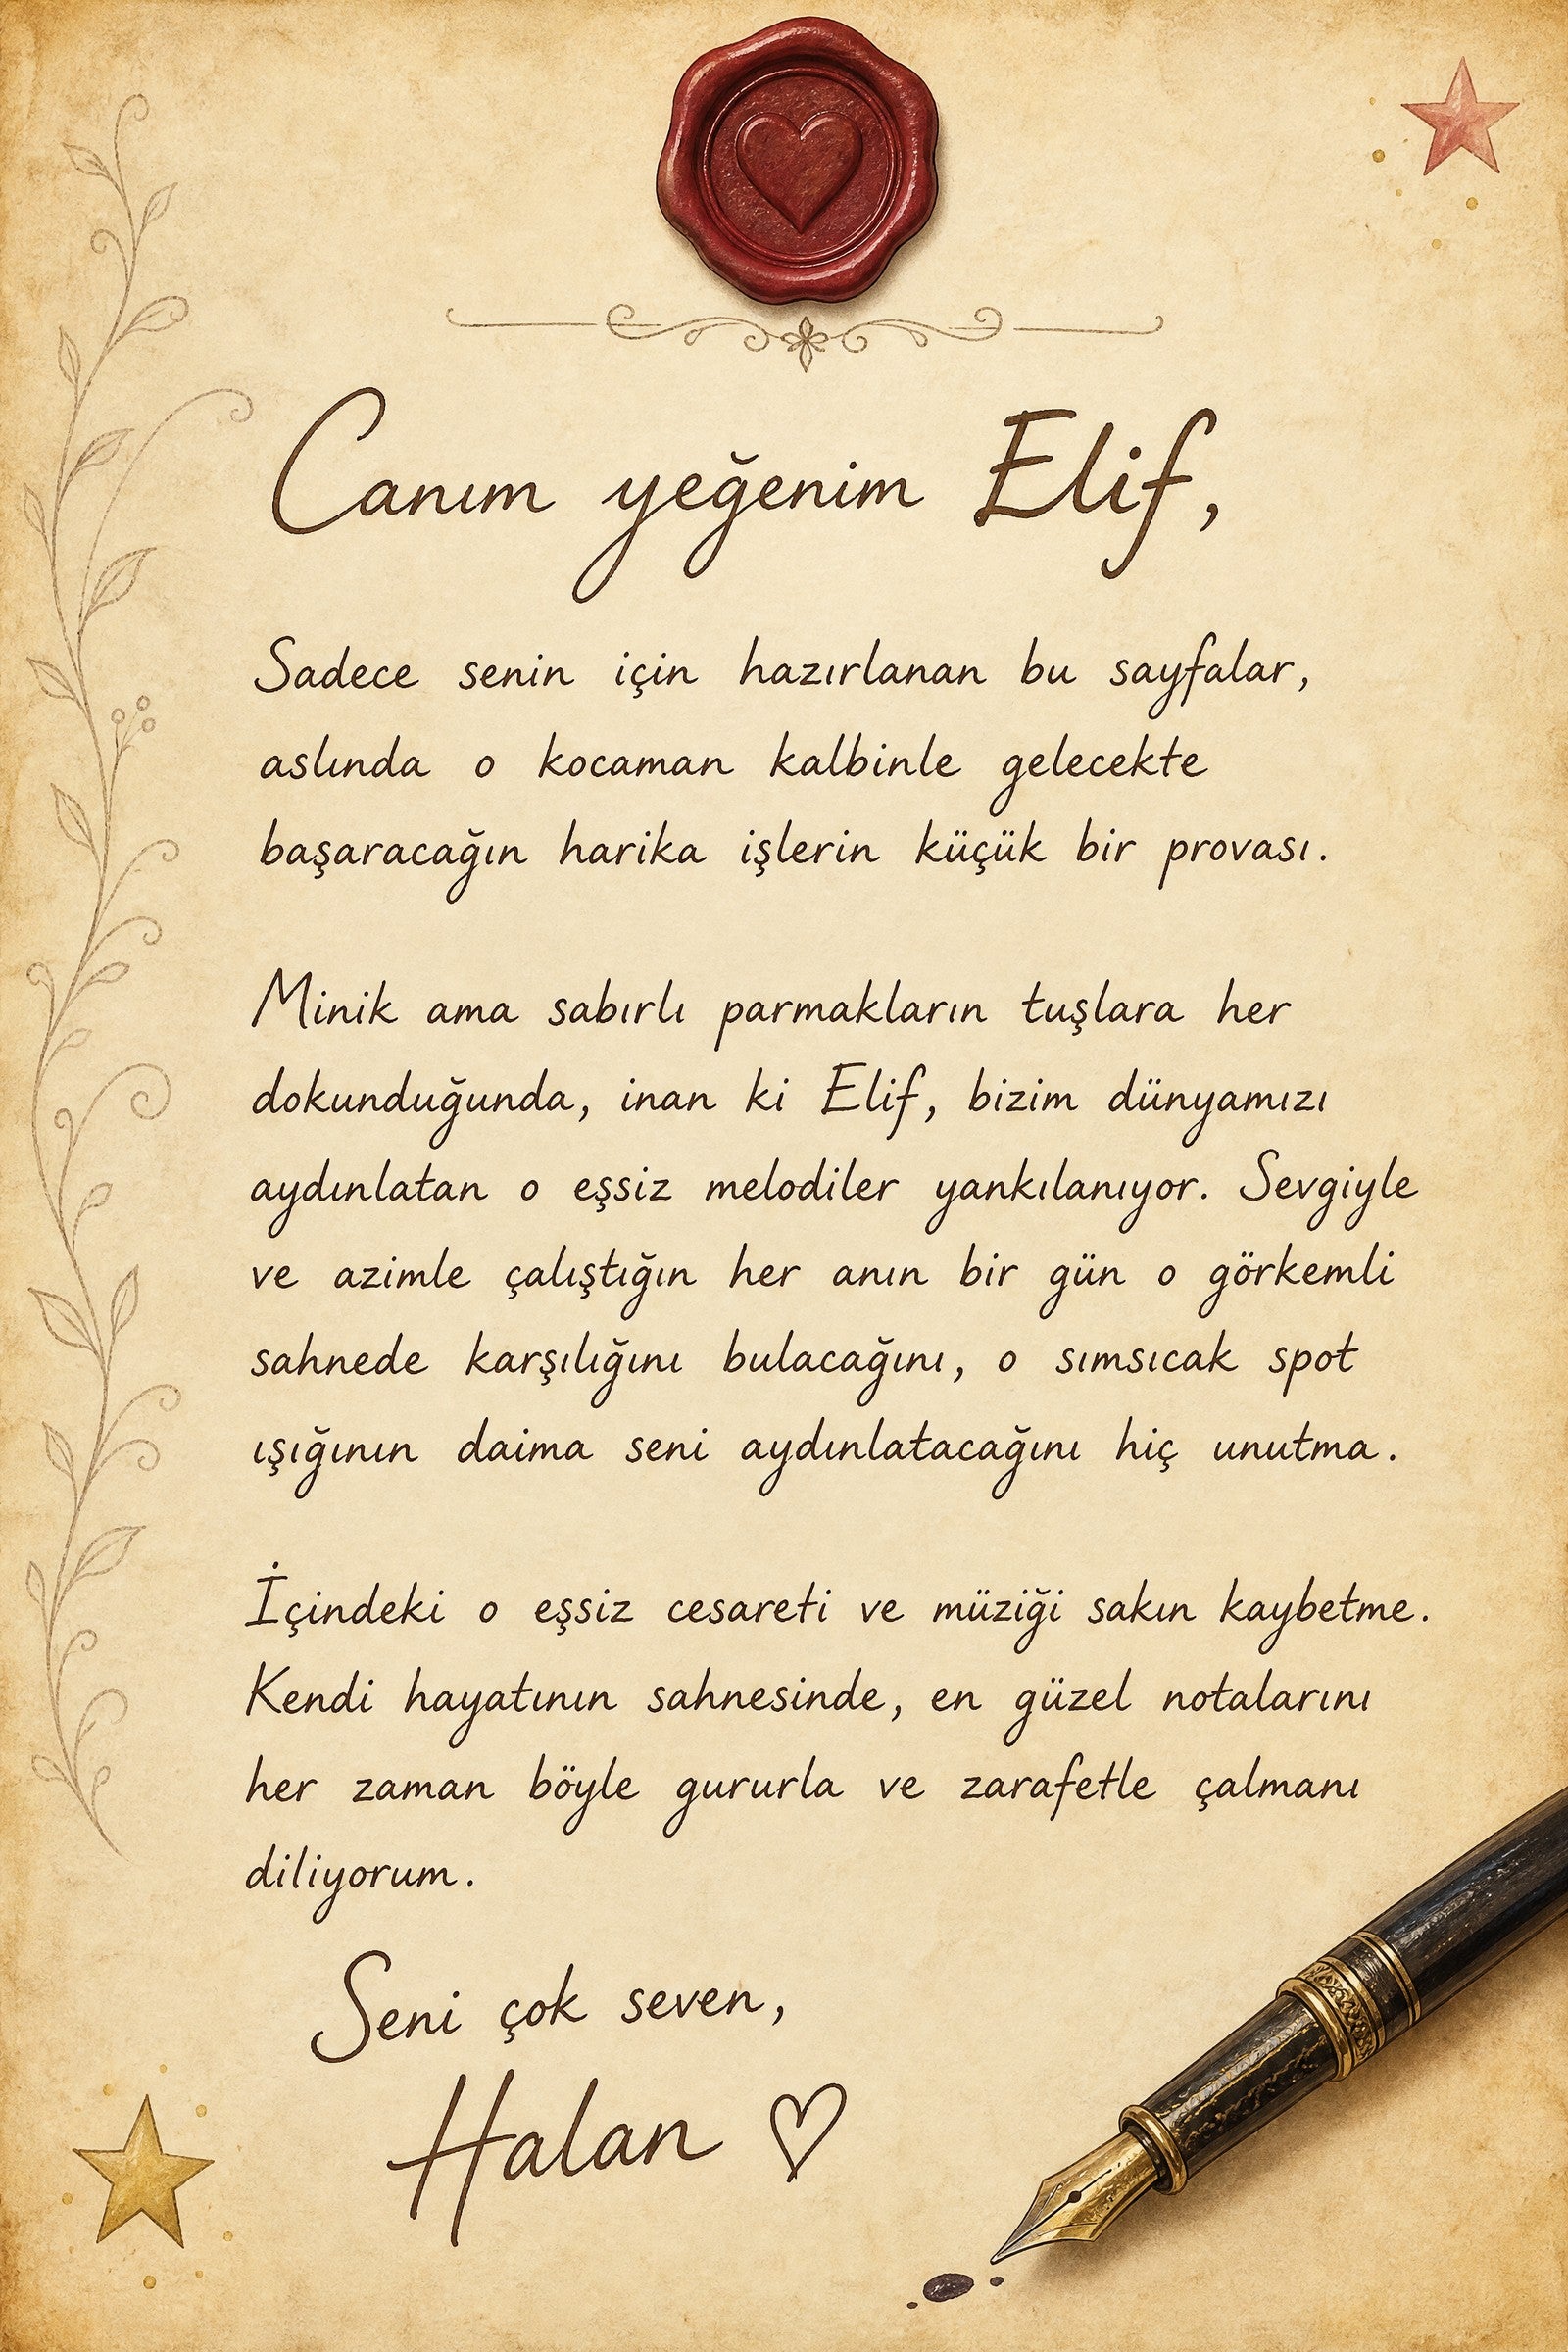 Canım yeğenim Elif,
Sadece senin için hazırlanan bu sayfalar,
aslında o kocaman kalbinle gelecekte
başaracağın harika işlerin küçük bir provası.
Minik ama sabırlı parmakların tuşlara her
dokunduğunda, inan ki Elif, bizim dünyamızı
aydınlatan o eşsiz melodiler yankılanıyor. Sevgiyle
ve azimle çalıştığın her anın bir gün o görkemli
sahnede karşılığını bulacağını, o sımsıcak spot
ışığının daima seni aydınlatacağını hiç unutma.
İçindeki o eşsiz cesareti ve müziği sakın kaybetme.
Kendi hayatının sahnesinde, en güzel notalarını
her zaman böyle gururla ve zarafetle çalmanı
diliyorum.
Seni çok seven,
Halan